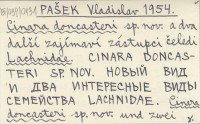 PAŠEK Vladislav 1954.
Cinara doncasteri sp. nov. a dva
další zajímaví zástupci čeledi
Lachnidae. CINARA DONCAS-
TERI SP. NOV. НОВЫЙ ВИД
И ДВА ИНТЕРЕСНЫЕ ВИДЫ
СЕМЕЙСТВА LACHNIDAE. Cinara
doncasteri sp. nov. und zwei